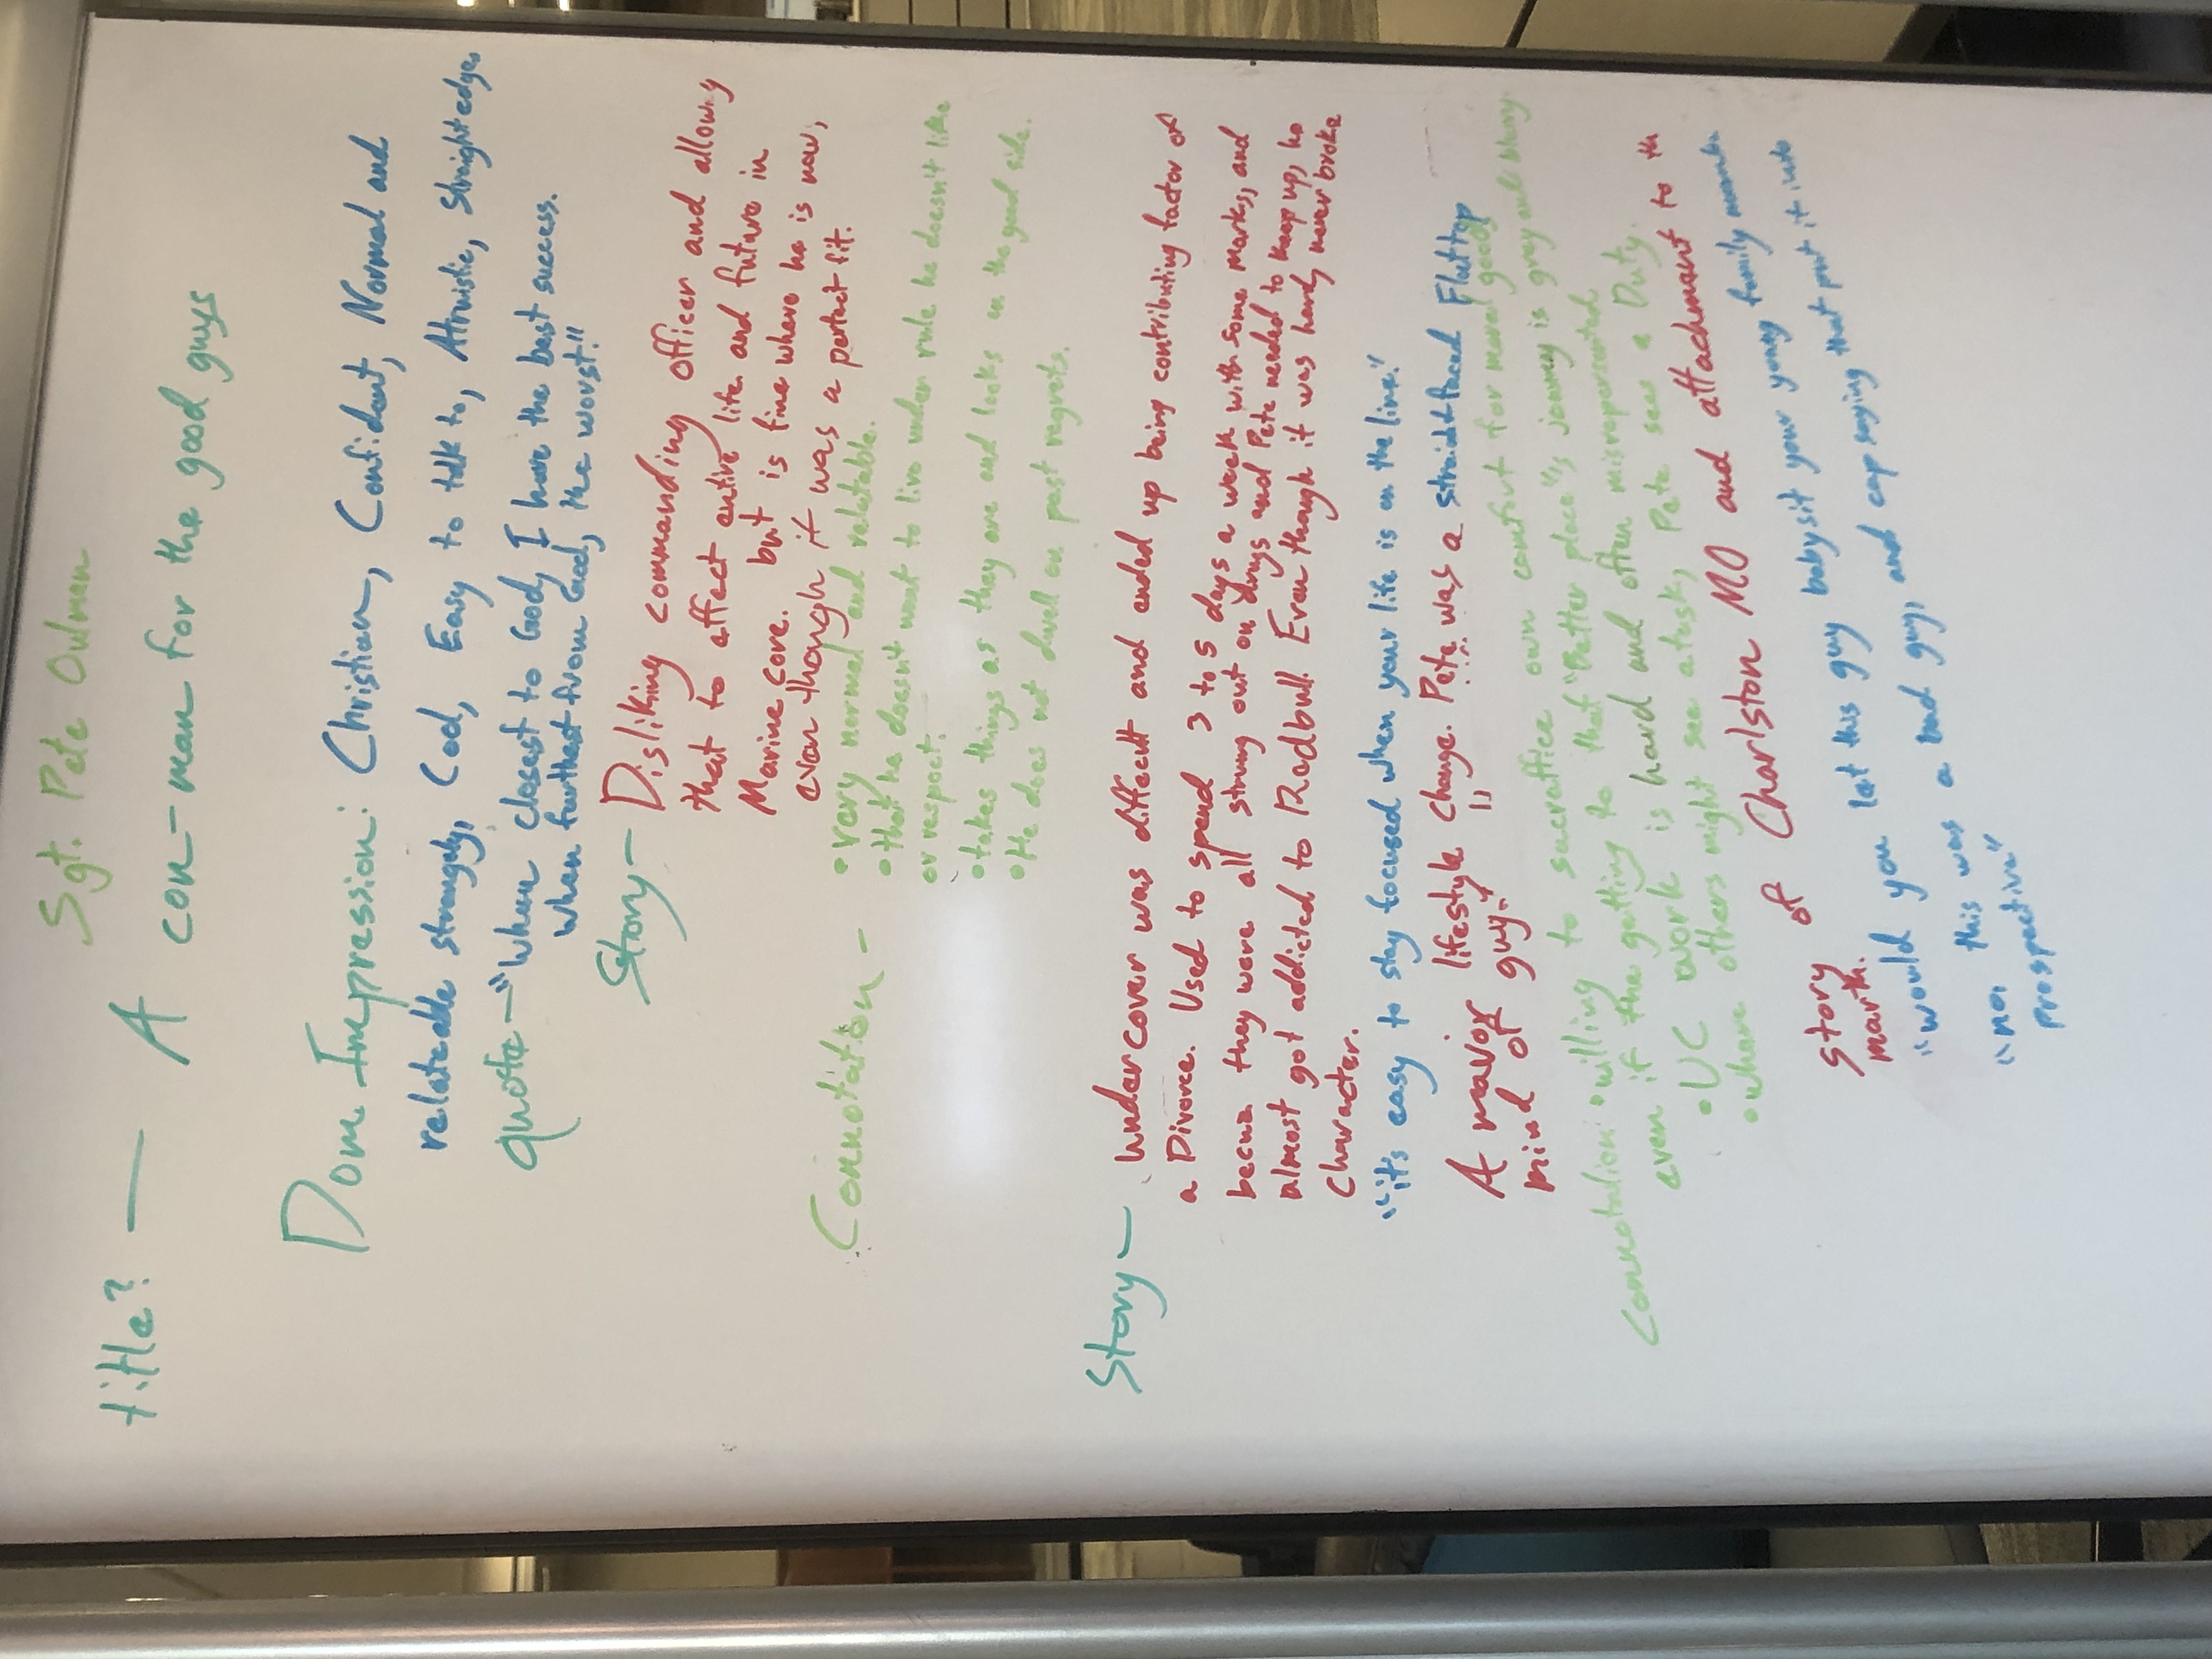 Sgt. Pete Oulman
title? — A con-man for the good guys
Dom. Impression: Christian, Confident, Normal and
relateable strangely, Cool, Easy to talk to, Altruistic, Straightedge.
quote — "When closest to God, I have the best success.
When furthest from God, the worst."
Story — Disliking commanding officer and allowing
that to effect entire life and future in
Marine core. but is fine where he is now,
even though it was a perfect fit.
Connotation — • very normal and relatable.
• that he doesn't want to live under rule he doesn't like
or respect.
• takes things as they are and looks on the good side.
• He does not dwell on past regrets.
Story — Undercover was difficult and ended up being contributing factor of
a Divorce. Used to spend 3 to 5 days a week with some marks, and
they were all strung out on drugs and Pete needed to keep up, he
almost got addicted to Redbull. Even though it was hard, never broke
Character.
"it's easy to stay focused when your life is on the line."
A mavor lifestyle change. Pete was a straight faced Flattop
mind of guy."
Connotation: • willing to sacraffice own comfort for moral good,
even if the getting to that "Better place"'s journey is grey and blurry.
• UC work is hard and often misrepersented
• where others might see a task, Pete sees a Duty.
story of Charlston MO and attachment to th
mark.
"would you let this guy babysit your young family
"no, this was a bad guy, and cap saying that put it into
Prospective"